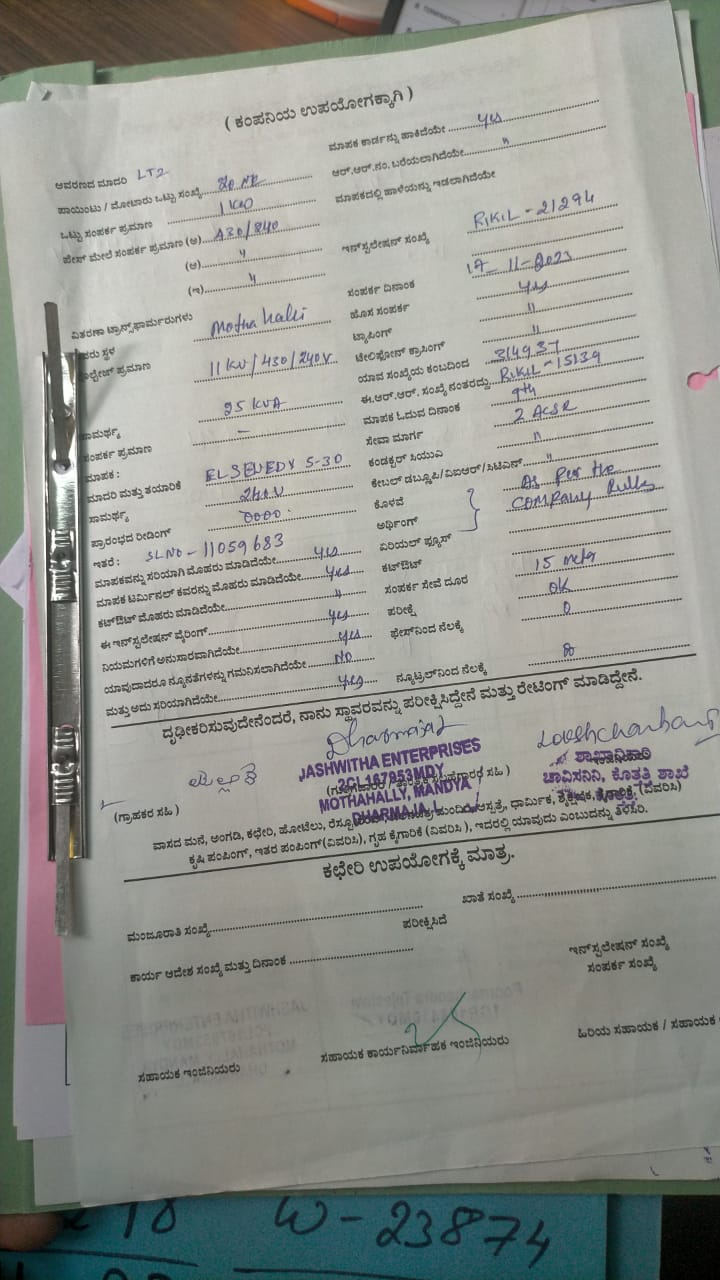 ( ಕಂಪನಿಯ ಉಪಯೋಗಕ್ಕಾಗಿ )
ಆವರಣದ ಮಾದರಿ LT2
ಪಾಯಿಂಟು / ಮೋಟಾರು ಒಟ್ಟು ಸಂಖ್ಯೆ
ಒಟ್ಟು ಸಂಪರ್ಕ ಪ್ರಮಾಣ 1 KW
ಫೇಸ್ ಮೇಲೆ ಸಂಪರ್ಕ ಪ್ರಮಾಣ (ಅ) 430/240
(ಆ) "
(ಇ) "
ವಿತರಣಾ ಟ್ರಾನ್ಸ್‌ಫಾರ್ಮರುಗಳು
ಸ್ಥಳ Motha halli
ಪ್ರಮಾಣ 11 KV/430/240V
25 KVA
ಸಂಪರ್ಕ ಪ್ರಮಾಣ –
ಮಾಪಕ :
ಮಾದರಿ ಮತ್ತು ತಯಾರಿಕೆ 5-30
ಸಾಮರ್ಥ್ಯ 240 V
ಪ್ರಾರಂಭದ ರೀಡಿಂಗ್ 0000.
ಇತರೆ : SLNO - 11059683
ಮಾಪಕವನ್ನು ಸರಿಯಾಗಿ ಮೊಹರು ಮಾಡಿದೆಯೇ yes
ಮಾಪಕ ಟರ್ಮಿನಲ್ ಕವರನ್ನು ಮೊಹರು ಮಾಡಿದೆಯೇ yes
ಕಟ್‌ಔಟ್ ಮೊಹರು ಮಾಡಿದೆಯೇ "
ಈ ಇನ್‌ಸ್ಟಲೇಷನ್ ವೈರಿಂಗ್ yes
ನಿಯಮಗಳಿಗೆ ಅನುಸಾರವಾಗಿದೆಯೇ yes
ಯಾವುದಾದರೂ ನ್ಯೂನತೆಗಳನ್ನು ಗಮನಿಸಲಾಗಿದೆಯೇ NO
ಮತ್ತು ಅದು ಸರಿಯಾಗಿದೆಯೇ yes
ಮಾಪಕ ಕಾರ್ಡನ್ನು ಹಾಕಿದೆಯೇ yes
ಆರ್.ಆರ್.ನಂ. ಬರೆಯಲಾಗಿದೆಯೇ "
ಮಾಪಕದಲ್ಲಿ ಹಾಳೆಯನ್ನು ಇಡಲಾಗಿದೆಯೇ
ಇನ್‌ಸ್ಟಲೇಷನ್ ಸಂಖ್ಯೆ RIKIL - 21294
ಸಂಪರ್ಕ ದಿನಾಂಕ
ಹೊಸ ಸಂಪರ್ಕ yes
ಟ್ಯಾಪಿಂಗ್ "
ಟೆಲಿಫೋನ್ ಕ್ರಾಸಿಂಗ್ "
ಯಾವ ಸಂಖ್ಯೆಯ ಕಂಬದಿಂದ 314937
ಈ.ಆರ್.ಆರ್. ಸಂಖ್ಯೆ ನಂತರದ್ದು RIKIL - 15139
ಮಾಪಕ ಓದುವ ದಿನಾಂಕ 9th
ಸೇವಾ ಮಾರ್ಗ 2 ACSR
ಕಂಡಕ್ಟರ್ ಸಿಯುಎ "
ಕೇಬಲ್ ಡಬ್ಲ್ಯೂಪಿ/ವಿಐಆರ್/ಸಿಟಿಎಸ್ "
ಕೊಳವೆ
ಅರ್ಥಿಂಗ್
As per the
COMPANY Rules
ಏರಿಯಲ್ ಫ್ಯೂಸ್
ಕಟ್‌ಔಟ್
ಸಂಪರ್ಕ ಸೇವೆ ದೂರ 15 meter
ಪರೀಕ್ಷೆ OK
ಫೇಸ್‌ನಿಂದ ನೆಲಕ್ಕೆ 0
ನ್ಯೂಟ್ರಲ್‌ನಿಂದ ನೆಲಕ್ಕೆ
ದೃಢೀಕರಿಸುವುದೇನೆಂದರೆ, ನಾನು ಸ್ಥಾವರವನ್ನು ಪರೀಕ್ಷಿಸಿದ್ದೇನೆ ಮತ್ತು ರೇಟಿಂಗ್ ಮಾಡಿದ್ದೇನೆ.
JASHWITHA ENTERPRISES
2CL167953MDY
MOTHAHALLY, MANDYA
DHARMARAJA. L
ಶಾಖಾಧಿಕಾರಿ
ಚಾವಿಸನಿನಿ, ಕೊತ್ತತ್ತಿ ಶಾಖೆ
(ಗ್ರಾಹಕರ ಸಹಿ )
ವಾಸದ ಮನೆ, ಅಂಗಡಿ, ಕಛೇರಿ, ಹೋಟೆಲು, ಧಾರ್ಮಿಕ, (ವಿವರಿಸಿ)
ಕೃಷಿ ಪಂಪಿಂಗ್, ಇತರ ಪಂಪಿಂಗ್(ವಿವರಿಸಿ), ಗೃಹ ಕೈಗಾರಿಕೆ (ವಿವರಿಸಿ ), ಇದರಲ್ಲಿ ಯಾವುದು ಎಂಬುದನ್ನು ತಿಳಿಸಿರಿ.
ಕಛೇರಿ ಉಪಯೋಗಕ್ಕೆ ಮಾತ್ರ.
ಮಂಜೂರಾತಿ ಸಂಖ್ಯೆ
ಖಾತೆ ಸಂಖ್ಯೆ
ಪರೀಕ್ಷಿಸಿದೆ
ಕಾರ್ಯ ಆದೇಶ ಸಂಖ್ಯೆ ಮತ್ತು ದಿನಾಂಕ
ಇನ್‌ಸ್ಟಲೇಷನ್ ಸಂಖ್ಯೆ
ಸಂಪರ್ಕ ಸಂಖ್ಯೆ
ಸಹಾಯಕ ಇಂಜಿನಿಯರು
ಸಹಾಯಕ ಕಾರ್ಯನಿರ್ವಾಹಕ ಇಂಜಿನಿಯರು
ಹಿರಿಯ ಸಹಾಯಕ / ಸಹಾಯಕ
W - 23874